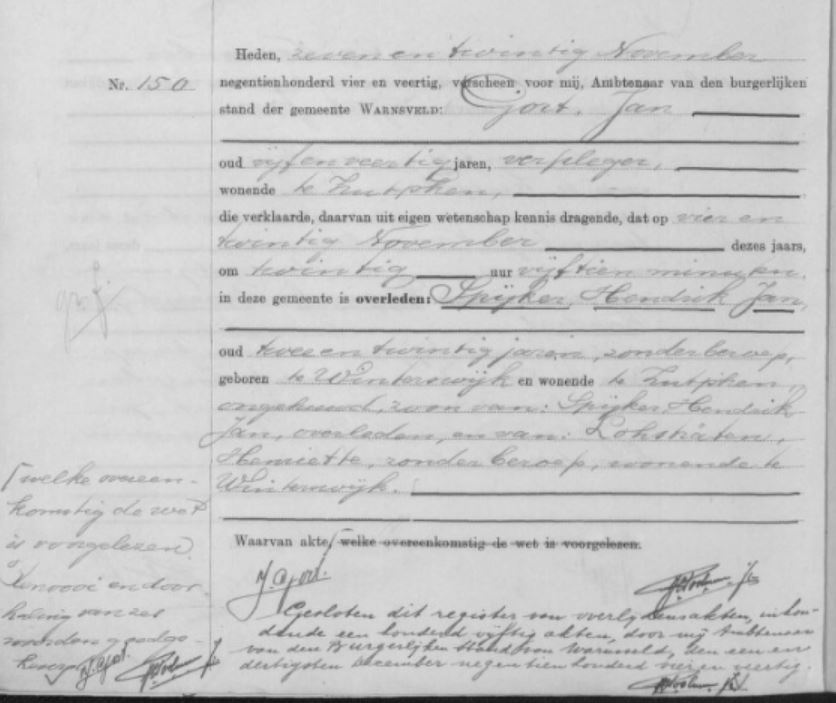 Heden, zeven en twintig November
Nr. 150 negentienhonderd vier en veertig, verscheen voor mij, Ambtenaar van den burgerlijken
stand der gemeente WARNSVELD: Gort, Jan
oud vijfenveertig jaren, verpleger,
wonende te Zutphen,
die verklaarde, daarvan uit eigen wetenschap kennis dragende, dat op vier en
twintig November dezes jaars,
om twintig uur vijftien minuten,
in deze gemeente is overleden: Spijker, Hendrik Jan,
oud twee en twintig jaren, zonder beroep,
geboren te Winterswijk en wonende te Zutphen,
ongehuwd, zoon van: Spijker Hendrik
Jan, overleden, en van: Lohsträten,
Henriette, zonder beroep, wonende te
Winterswijk.
Waarvan akte, welke overeenkomstig de wet is voorgelezen.
welke overeen-
komstig de wet
is voorgelezen.
en door-
haling van zes
woorden goedge-
J. Gort.
J. Gort.
Gesloten dit register van overlijdensakten, inhou-
dende een honderd vijftig akten, door mij Ambtenaar
van den Burgerlijken Stand van Warnsveld, den een en
dertigsten December negentienhonderd vier en veertig.